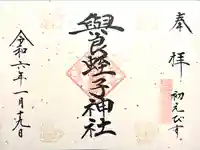 奉拝
初えびす
與良蛭子神社
令和六年一月十九日